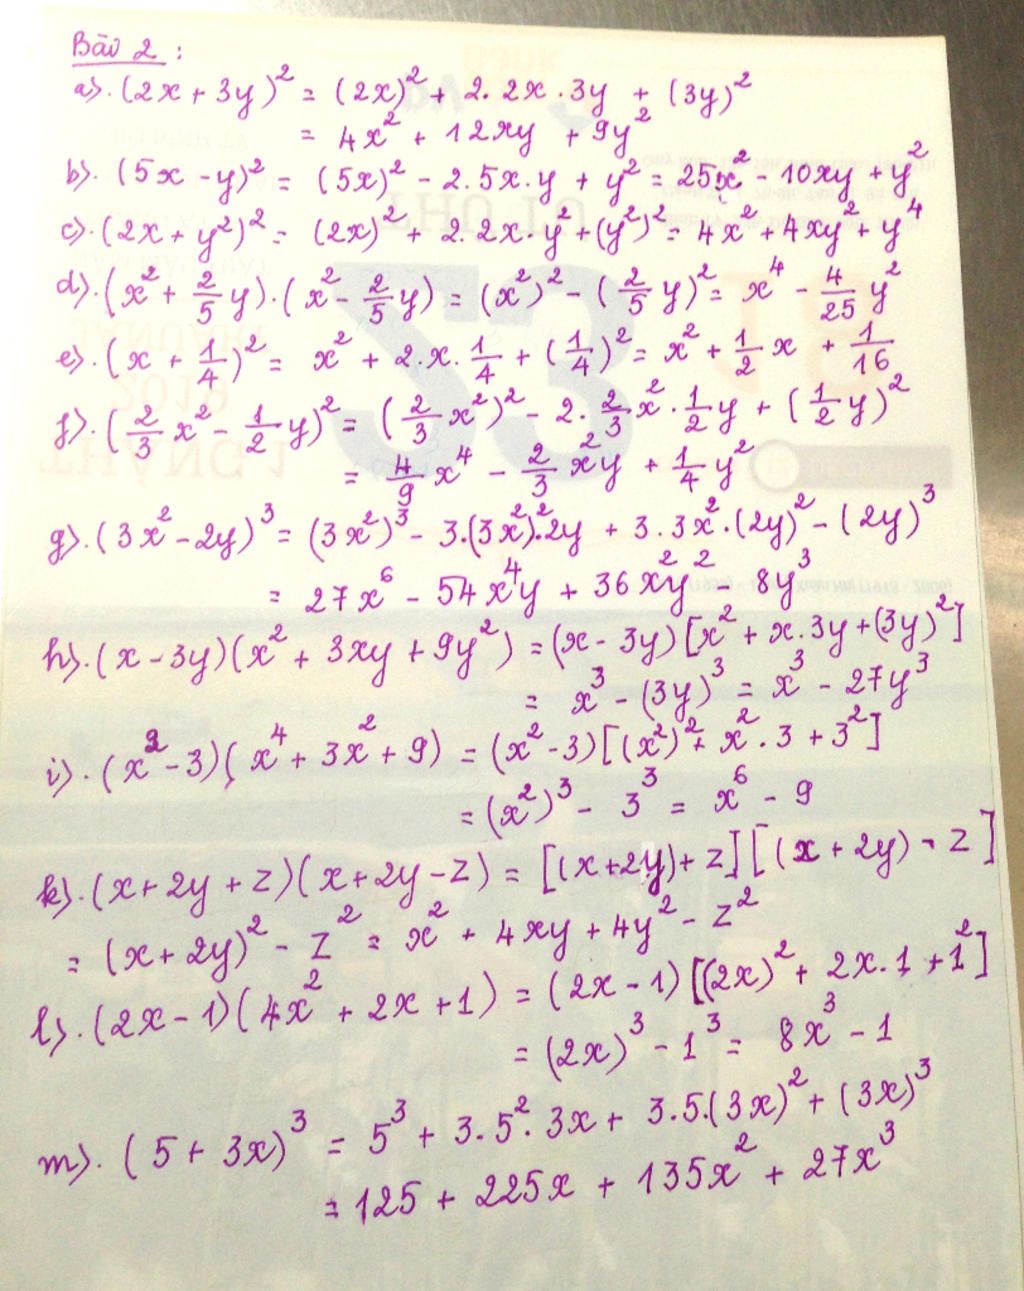 Bài 2 :
a). (2x + 3y)² = (2x)² + 2. 2x . 3y + (3y)²
= 4x² + 12xy + 9y²
b). (5x - y)² = (5x)² - 2.5x.y + y² = 25x² - 10xy + y²
c). (2x + y²)² = (2x)² + 2.2x.y² + (y²)² = 4x² + 4xy² + y⁴
d). (x² + 2/5 y) . (x² - 2/5 y) = (x²)² - (2/5 y)² = x⁴ - 4/25 y²
e). (x + 1/4)² = x² + 2.x. 1/4 + (1/4)² = x² + 1/2 x + 1/16
f). (2/3 x² - 1/2 y)² = (2/3 x²)² - 2. 2/3 x² . 1/2 y + (1/2 y)²
= 4/9 x⁴ - 2/3 x²y + 1/4 y²
g). (3x² - 2y)³ = (3x²)³ - 3.(3x²)².2y + 3.3x².(2y)² - (2y)³
= 27x⁶ - 54x⁴y + 36x²y² - 8y³
h). (x - 3y)(x² + 3xy + 9y²) = (x - 3y)[x² + x.3y + (3y)²]
= x³ - (3y)³ = x³ - 27y³
i). (x² - 3)(x⁴ + 3x² + 9) = (x² - 3)[(x²)² + x².3 + 3²]
= (x²)³ - 3³ = x⁶ - 9
k). (x + 2y + z)(x + 2y - z) = [(x + 2y) + z][(x + 2y) - z]
= (x + 2y)² - z² = x² + 4xy + 4y² - z²
l). (2x - 1)(4x² + 2x + 1) = (2x - 1)[(2x)² + 2x.1 + 1²]
= (2x)³ - 1³ = 8x³ - 1
m). (5 + 3x)³ = 5³ + 3.5².3x + 3.5.(3x)² + (3x)³
= 125 + 225x + 135x² + 27x³